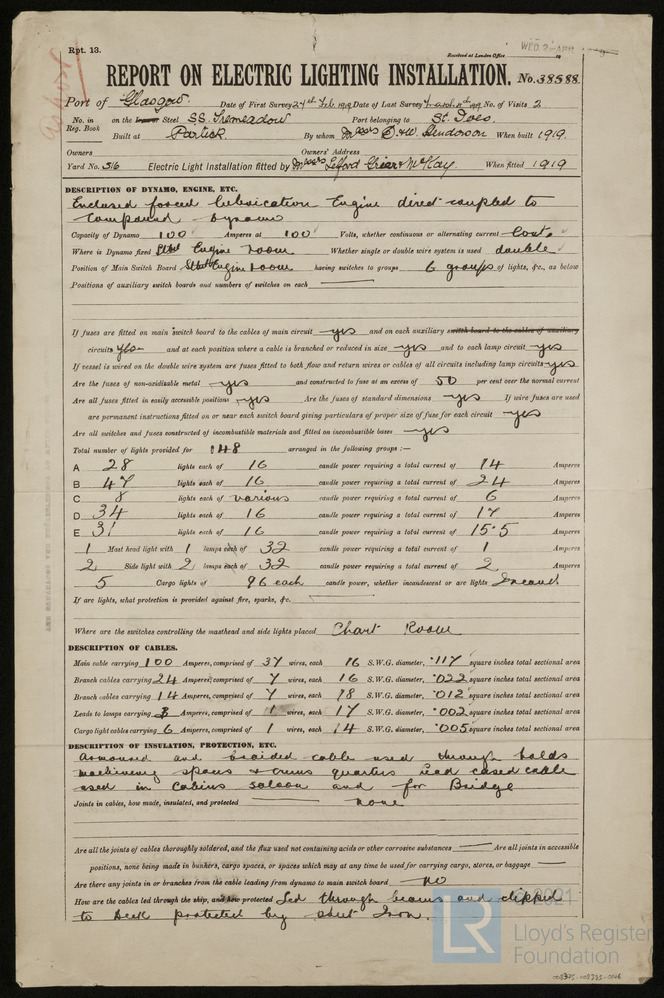 Rpt. 13.
Received at London Office
WED. 2 - APR
REPORT ON ELECTRIC LIGHTING INSTALLATION. No. 38588
Port of Glasgow Date of First Survey 24th Feb 1919 Date of Last Survey No. of Visits 2
No. in Reg. Book on the Iron or Steel S.S. Tremeadow Port belonging to St. Ives
Built at Partick By whom Messrs D. & W. Henderson When built 1919
Owners Owners' Address
Yard No. 516 Electric Light Installation fitted by Messrs Telford Grier & McKay When fitted 1919
DESCRIPTION OF DYNAMO, ENGINE, ETC.
Enclosed forced lubrication Engine direct coupled to
Compound Dynamo
Capacity of Dynamo 100 Amperes at 100 Volts, whether continuous or alternating current Cont.
Where is Dynamo fixed Engine room Whether single or double wire system is used double
Position of Main Switch Board Engine room having switches to groups 6 groups of lights, &c., as below
Positions of auxiliary switch boards and numbers of switches on each
If fuses are fitted on main switch board to the cables of main circuit yes and on each auxiliary switch board to the cables of auxiliary
circuits yes and at each position where a cable is branched or reduced in size yes and to each lamp circuit yes
If vessel is wired on the double wire system are fuses fitted to both flow and return wires or cables of all circuits including lamp circuits yes
Are the fuses of non-oxidizable metal yes and constructed to fuse at an excess of 50 per cent over the normal current
Are all fuses fitted in easily accessible positions yes Are the fuses of standard dimensions yes If wire fuses are used
are permanent instructions fitted on or near each switch board giving particulars of proper size of fuse for each circuit yes
Are all switches and fuses constructed of incombustible materials and fitted on incombustible bases yes
Total number of lights provided for 148 arranged in the following groups :—
A 28 lights each of 16 candle power requiring a total current of 14 Amperes
B 47 lights each of 16 candle power requiring a total current of 24 Amperes
C 8 lights each of various candle power requiring a total current of 6 Amperes
D 34 lights each of 16 candle power requiring a total current of 17 Amperes
E 31 lights each of 16 candle power requiring a total current of 15.5 Amperes
1 Mast head light with 1 lamps each of 32 candle power requiring a total current of 1 Amperes
2 Side light with 2 lamps each of 32 candle power requiring a total current of 2 Amperes
5 Cargo lights of 96 each candle power, whether incandescent or arc lights Incand.
If arc lights, what protection is provided against fire, sparks, &c.
Where are the switches controlling the masthead and side lights placed Chart Room
DESCRIPTION OF CABLES.
Main cable carrying 100 Amperes, comprised of 37 wires, each 16 S.W.G. diameter, .117 square inches total sectional area
Branch cables carrying 24 Amperes, comprised of 7 wires, each 16 S.W.G. diameter, .022 square inches total sectional area
Branch cables carrying 14 Amperes, comprised of 7 wires, each 18 S.W.G. diameter, .012 square inches total sectional area
Leads to lamps carrying 3 Amperes, comprised of 1 wires, each 17 S.W.G. diameter, .002 square inches total sectional area
Cargo light cables carrying 6 Amperes, comprised of 1 wires, each 14 S.W.G. diameter, .005 square inches total sectional area
DESCRIPTION OF INSULATION, PROTECTION, ETC.
Armoured and braided cable used through holds
machinery spaces & crews quarters lead cased cable
used in cabins saloon and for Bridge
Joints in cables, how made, insulated, and protected none
Are all the joints of cables thoroughly soldered, and the flux used not containing acids or other corrosive substances Are all joints in accessible
positions, none being made in bunkers, cargo spaces, or spaces which may at any time be used for carrying cargo, stores, or baggage
Are there any joints in or branches from the cable leading from dynamo to main switch board no
How are the cables led through the ship, and how protected Led through beams and clipped
to deck protected by sheet Iron.
2021
LR
Lloyd's Register
Foundation
008375-008383-0046